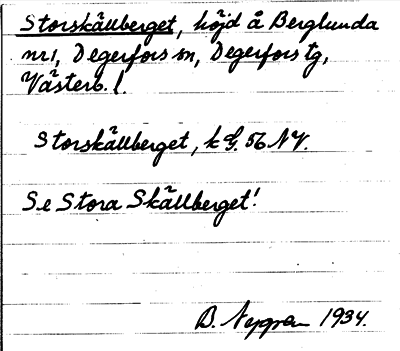 Storskällberget, höjd å Berglunda
nr 1, Degerfors sn, Degerfors tg,
Västerb. l.
Storskällberget, k G. 56 NV.
Se Stora Skällberget!
B. Nygren 1934.